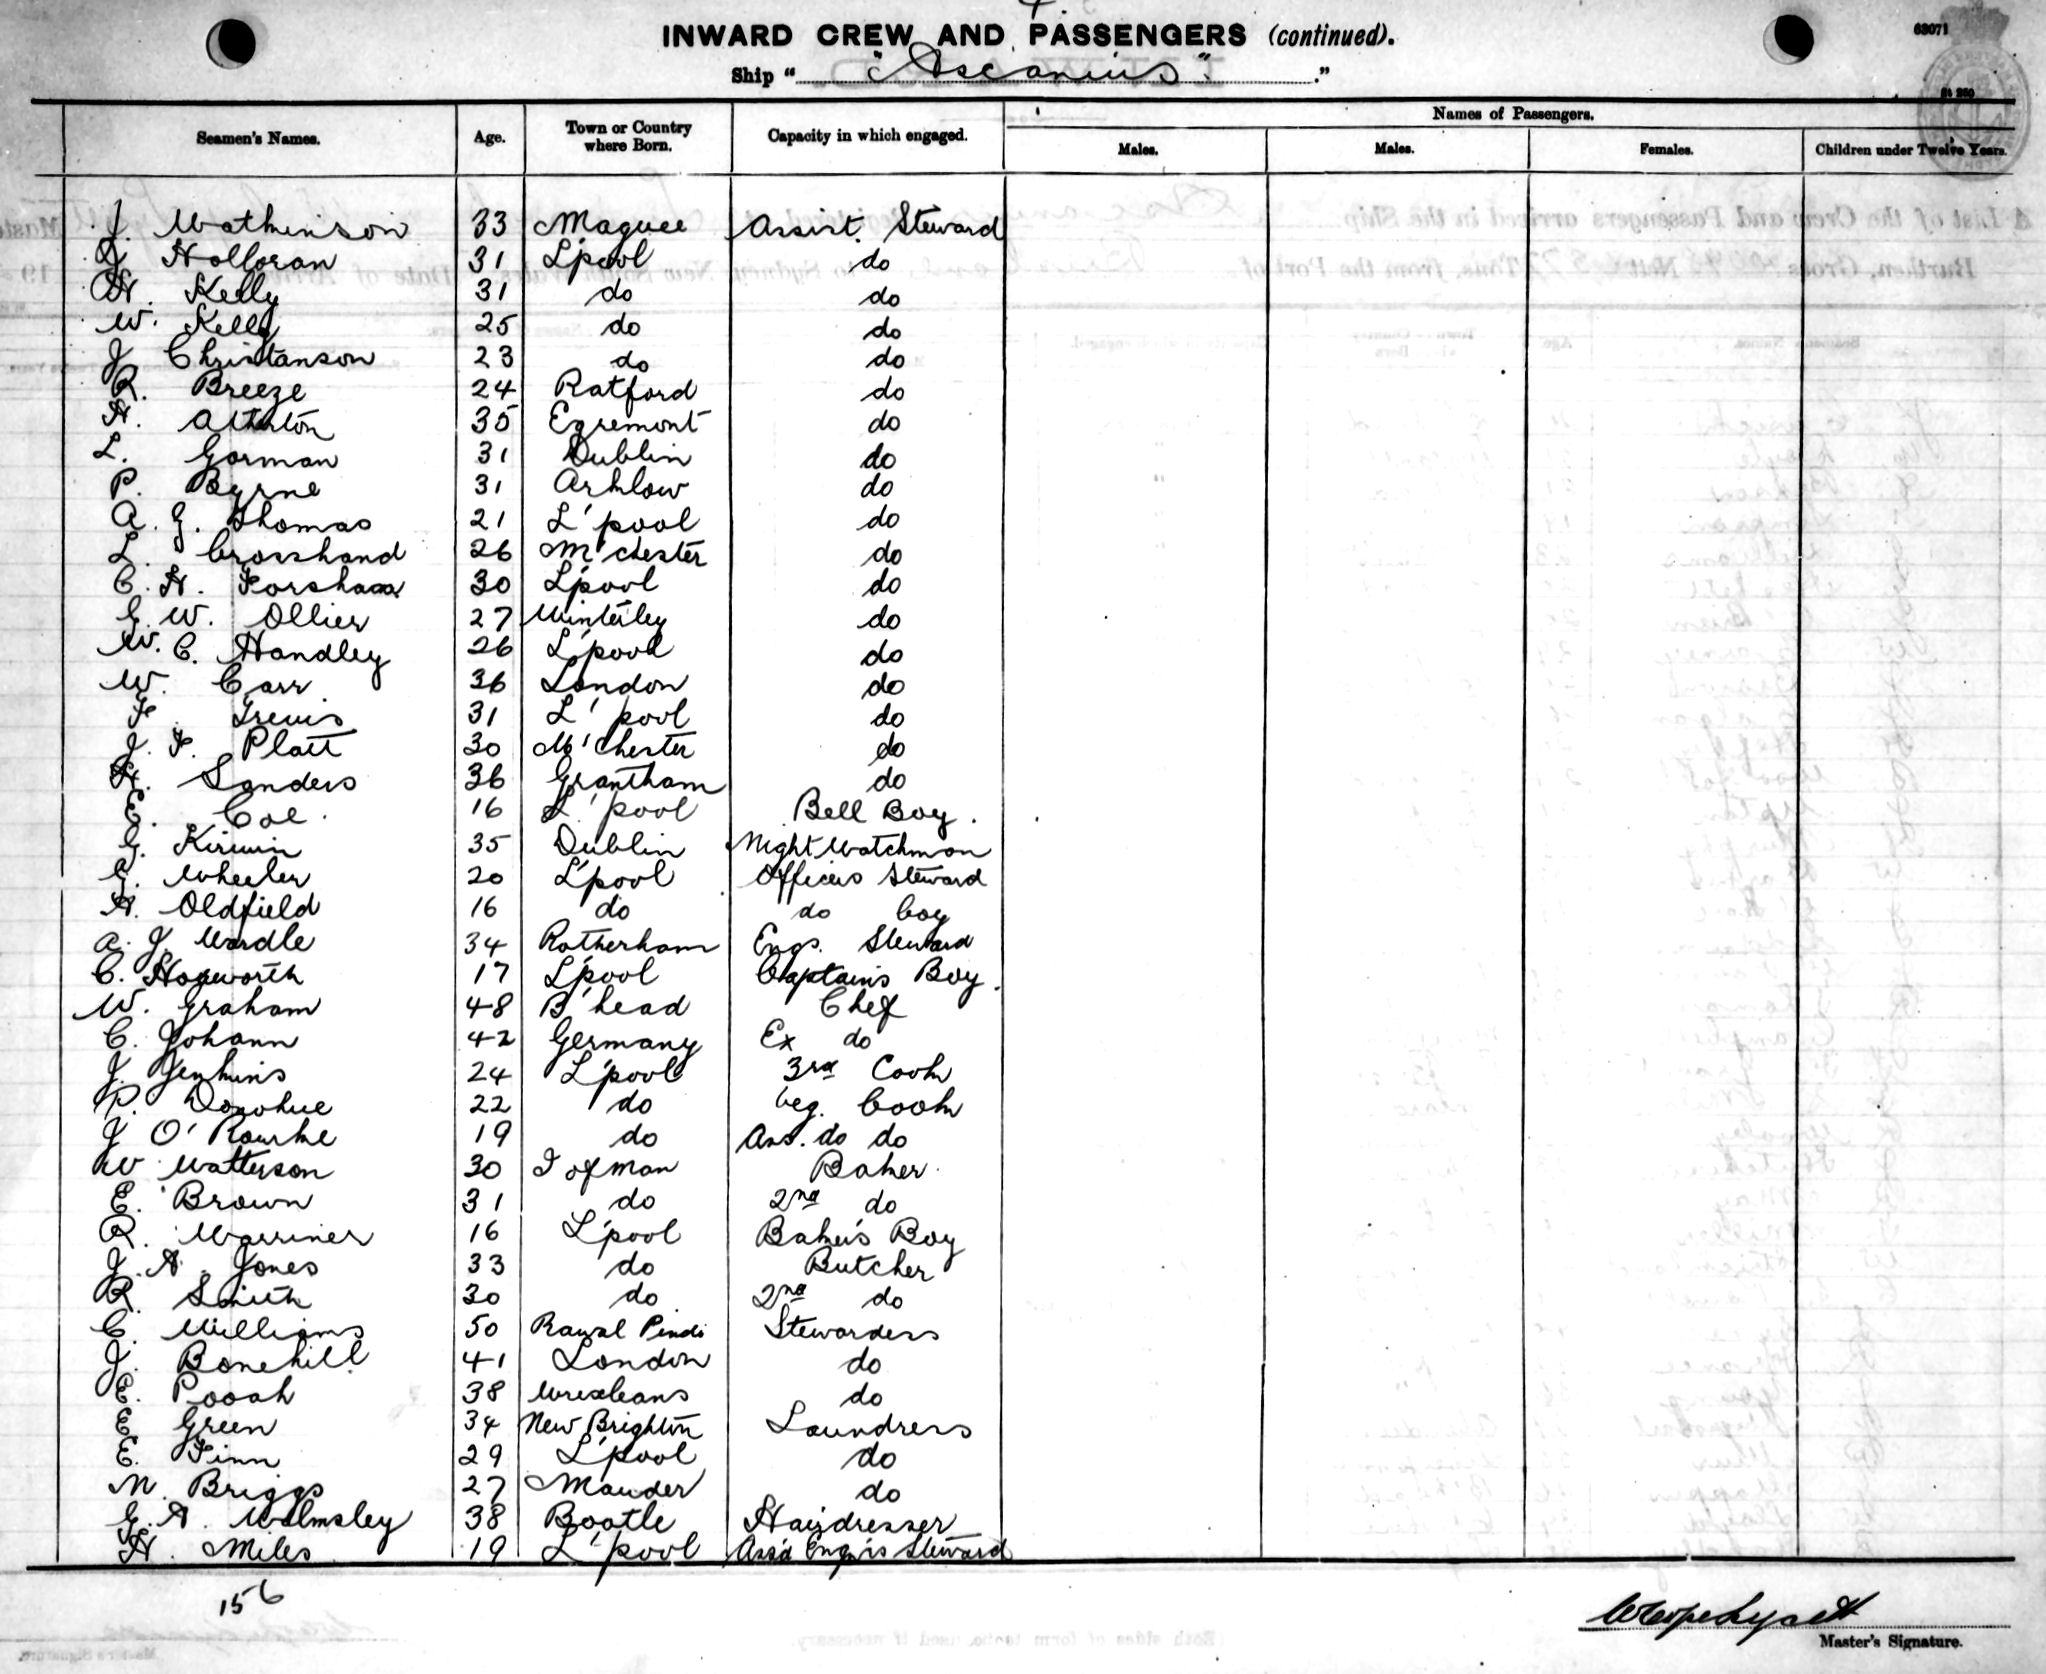 INWARD CREW AND PASSENGERS (continued).
63071
Ship " "Ascanius" ."
Seamen's Names. Age. Town or Country where Born. Capacity in which engaged. Names of Passengers.
Males. Males. Females. Children under Twelve Years.
J. Watkinson 33 Maguee Assist. Steward
Holloran 31 L'pool do
H. Kelly 31 do do
W. Kelly 25 do do
J Christanson 23 do do
R. Breeze 24 Ratford do
H. Atherton 35 Egremont do
L. Gorman 31 Dublin do
P. Byrne 31 Arklow do
A. G. Thomas 21 L'pool do
L. Crosshand 26 M'chester do
C. H. Forshaw 30 L'pool do
E. W. Ollier 27 Winterley do
W. C. Handley 26 L'pool do
W. Carr 36 London do
F. Trevis 31 L'pool do
J. F. Platt 30 M'chester do
H. Sanders 36 Grantham do
E. Coe. 16 L'pool Bell Boy.
G. Kirwin 35 Dublin Night Watchman
G. Wheeler 20 L'pool Officers Steward
H. Oldfield 16 do do boy
A. J. Wardle 34 Rotherham Engs. Steward
C. Howorth 17 L'pool Captain's Boy.
W. Graham 48 B'head Chef
C. Johann 42 Germany Ex do
J. Jenkins 24 L'pool 3rd Cook
P. Donohue 22 do Veg. Cook
J O'Rourke 19 do Ass. do do
W Watterson 30 I of Man Baker
E. Brown 31 do 2nd do
R. Warriner 16 L'pool Baker's Boy
J. A. Jones 33 do Butcher
R. Smith 30 do 2nd do
C. Williams 50 Rawal Pindi Stewardess
J. Bonehill 41 London do
E. Pooah 38 do
E Green 34 New Brighton Laundress
E. Finn 29 L'pool do
M. Briggs 27 Mauder do
E. A. Walmsley 38 Bootle Hairdresser
H. Miles 19 L'pool Ass't Engr's Steward
156
Master's Signature.